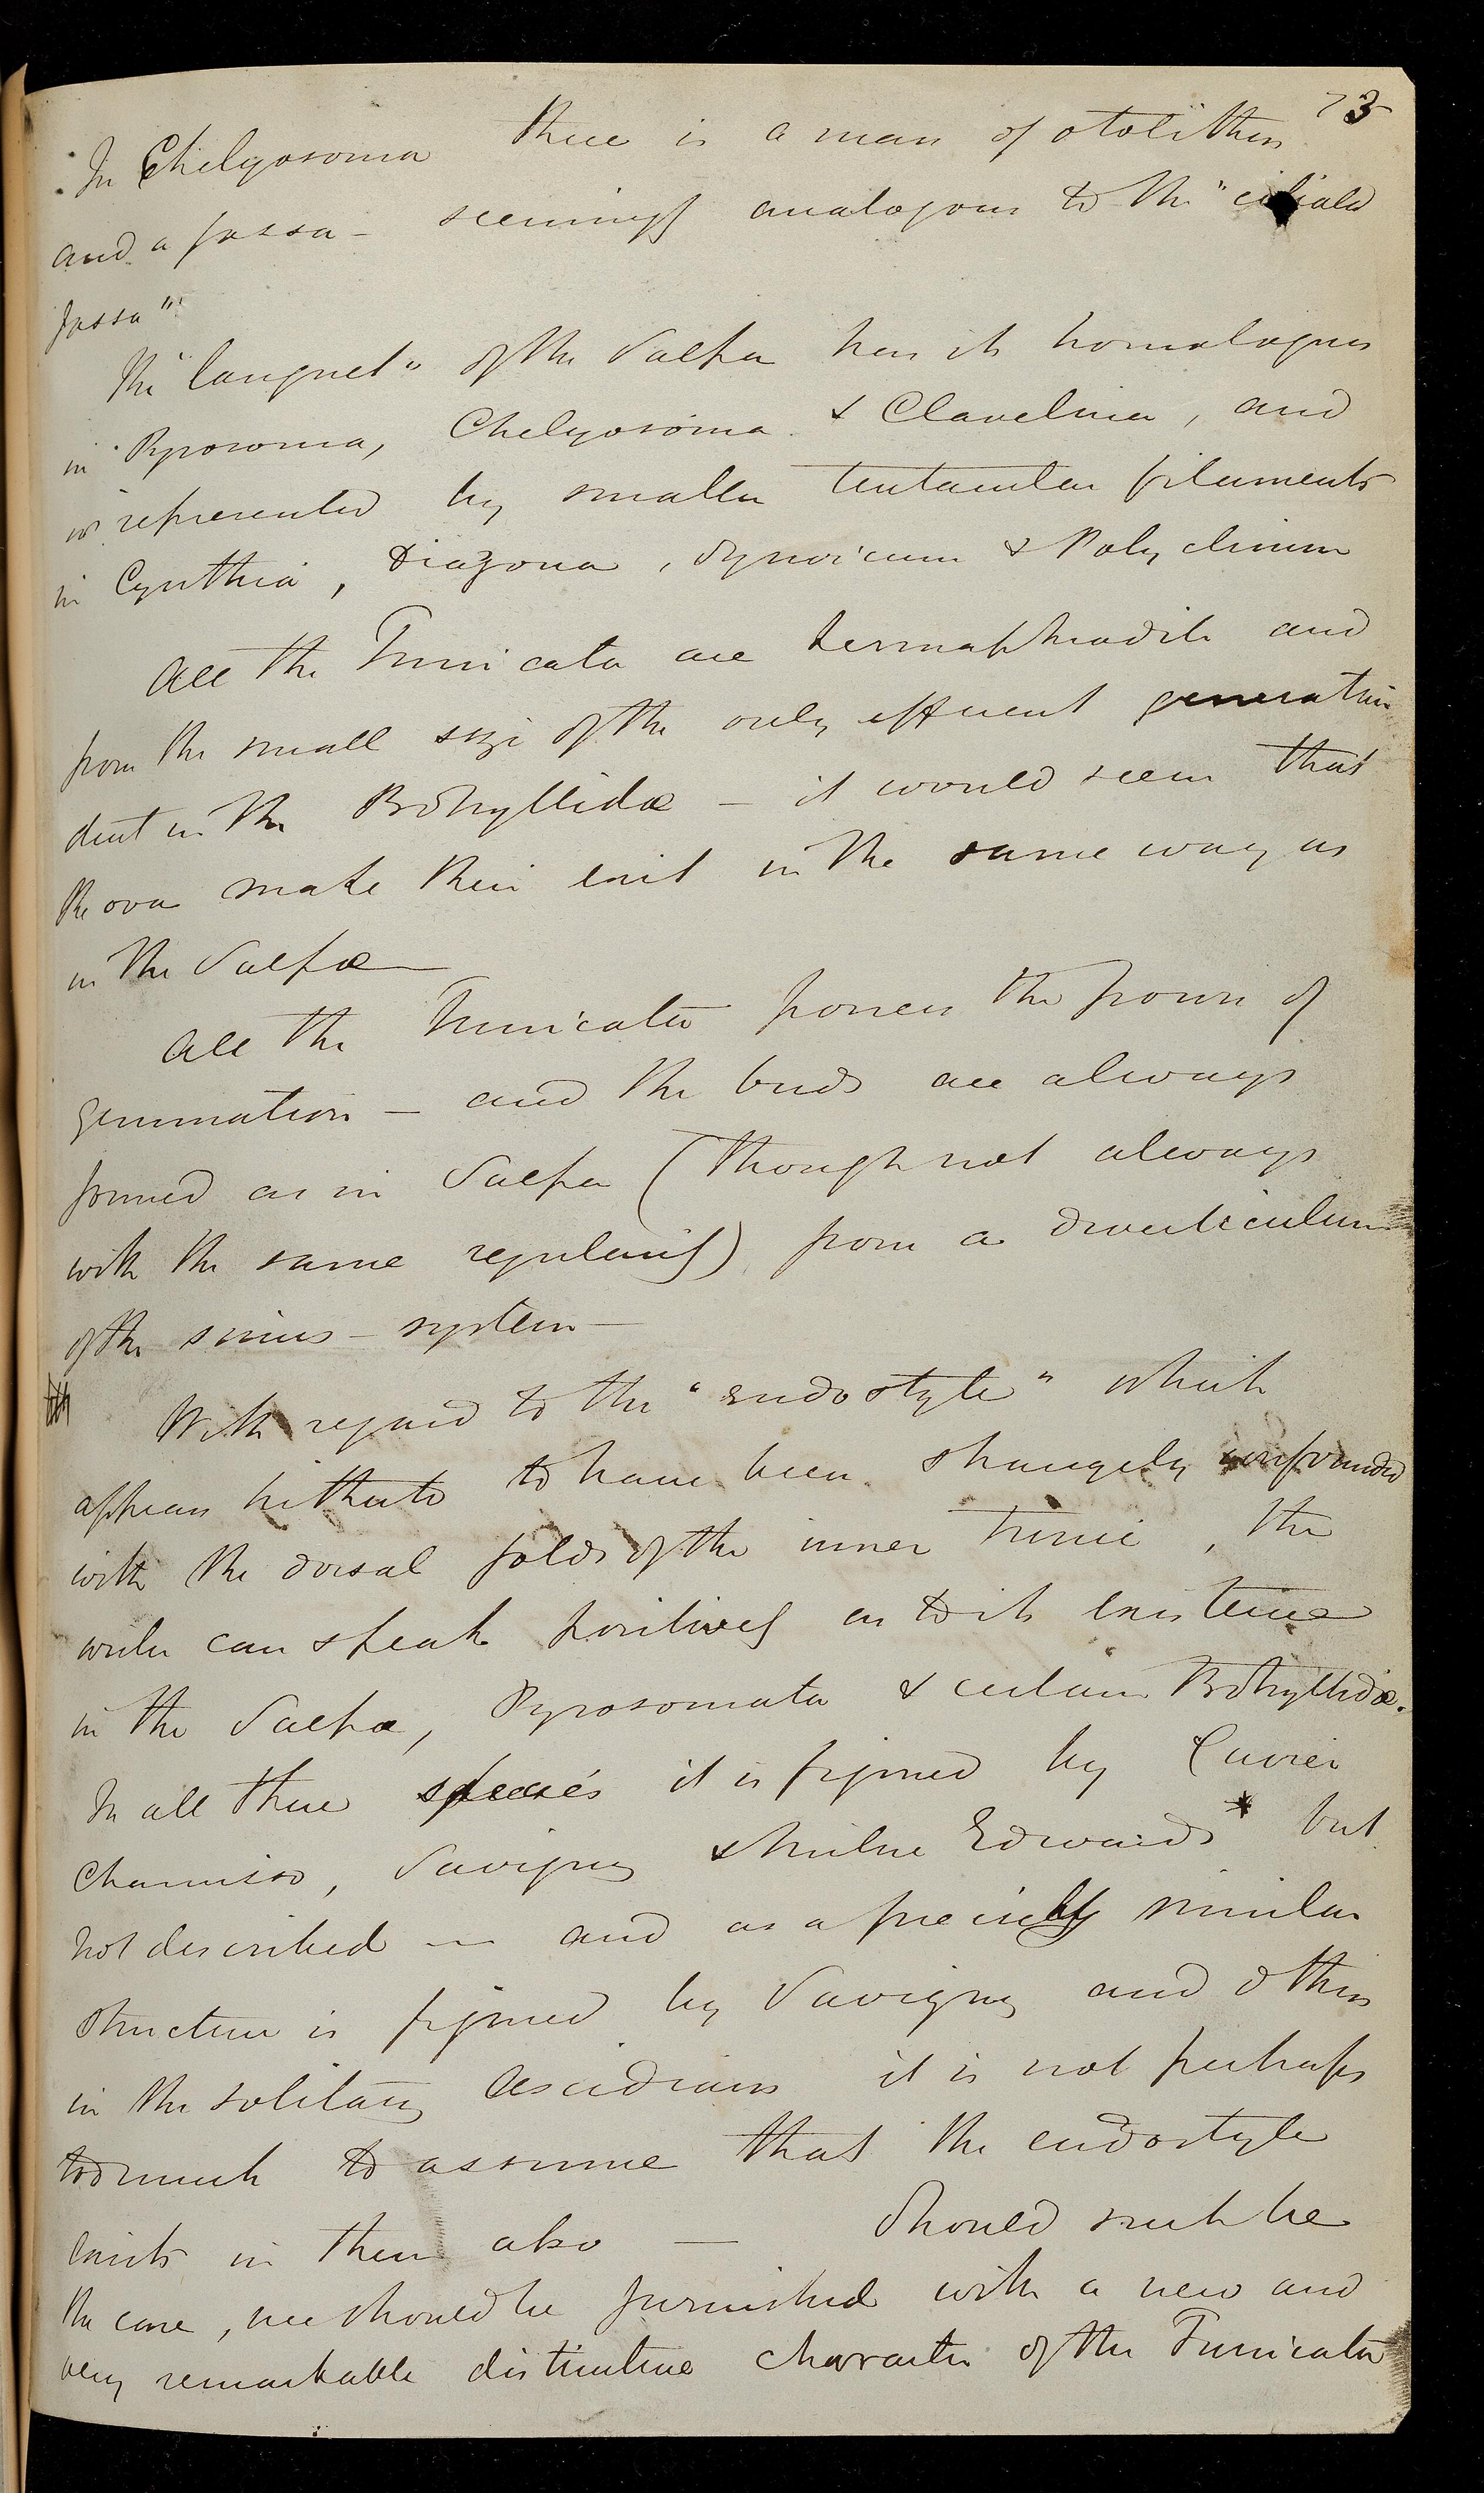 73
In Chelyosoma there is a mass of otolithes
and a fossa - seemingly analogous to the "ciliated
fossa"
The "languet" of the Salpa has its homologues
in Pyrosoma, Chelyosoma & Clavelina, and
is represented by smaller tentacular filaments
in Cynthia, Diazona, Synoicum & Polyclinum
All the Tunicata are hermaphrodite and
from the small size of the only efferent generative
duct in the Botryllidæ - it would seem that
the ova make their exit in the same way as
in the Salpæ
All the Tunicata possess the power of
gemmation - and the buds are always
formed as in Salpa (though not always
with the same regularity) from a diverticulum
of the sinus-system -
With regard to the "endostyle" which
appears hitherto to have been strangely confounded
with the dorsal folds of the inner tunic, the
writer can speak positively as to its existence
in the Salpæ, Pyrosomata & certain Botryllidæ.
In all these species it is figured by Cuvier
Chamisso, Savigny & Milne Edwards* but
not described - and as a precisely similar
structure is figured by Savigny and others
in the solitary Ascidians it is not perhaps
too much to assume that the endostyle
exists in them also - Should such be
the case, we should be furnished with a new and
very remarkable distinctive character of the Tunicata